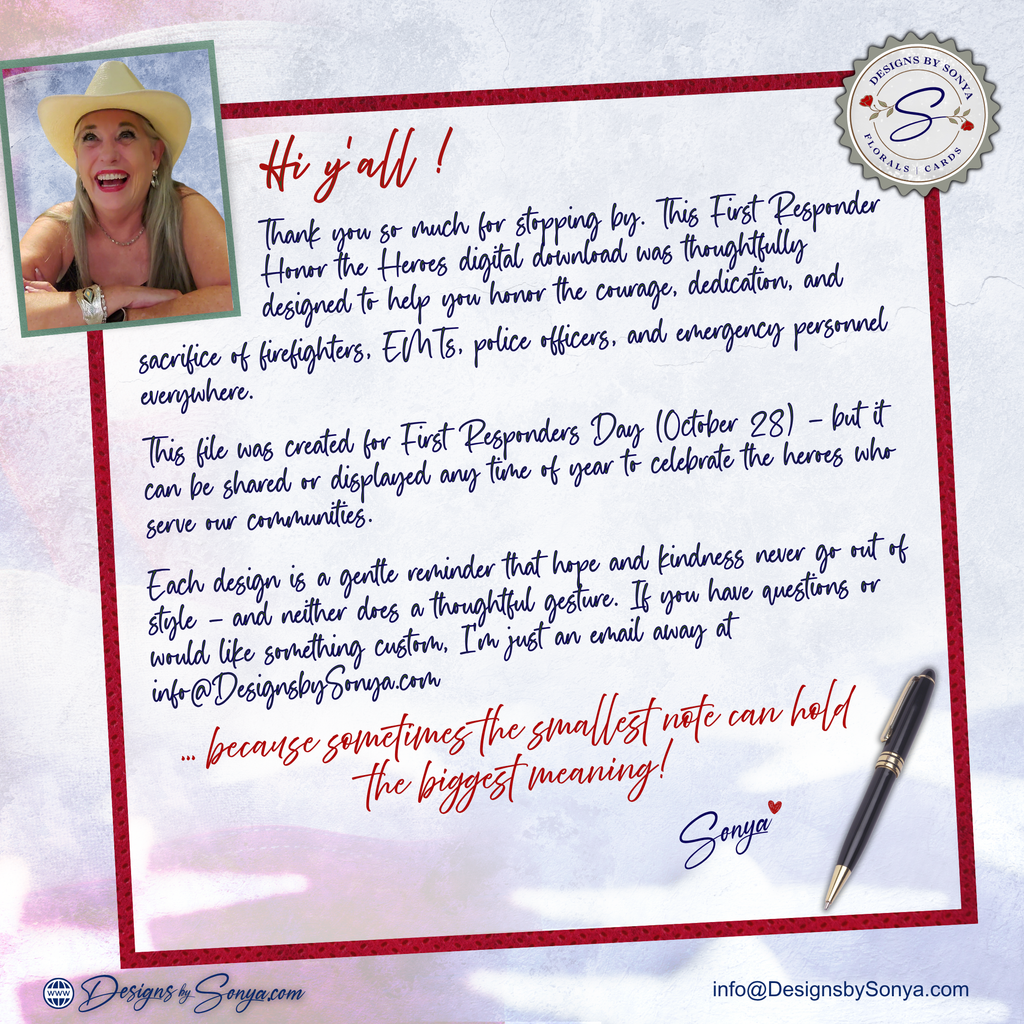 DESIGNS BY SONYA
S
FLORALS | CARDS
Hi y'all !
Thank you so much for stopping by. This First Responder
Honor the Heroes digital download was thoughtfully
designed to help you honor the courage, dedication, and
sacrifice of firefighters, EMTs, police officers, and emergency personnel
everywhere.
This file was created for First Responders Day (October 28) – but it
can be shared or displayed any time of year to celebrate the heroes who
serve our communities.
Each design is a gentle reminder that hope and kindness never go out of
style – and neither does a thoughtful gesture. If you have questions or
would like something custom, I'm just an email away at
info@DesignsbySonya.com
... because sometimes the smallest note can hold
the biggest meaning!
Sonya
WWW Designs by Sonya.com
info@DesignsbySonya.com